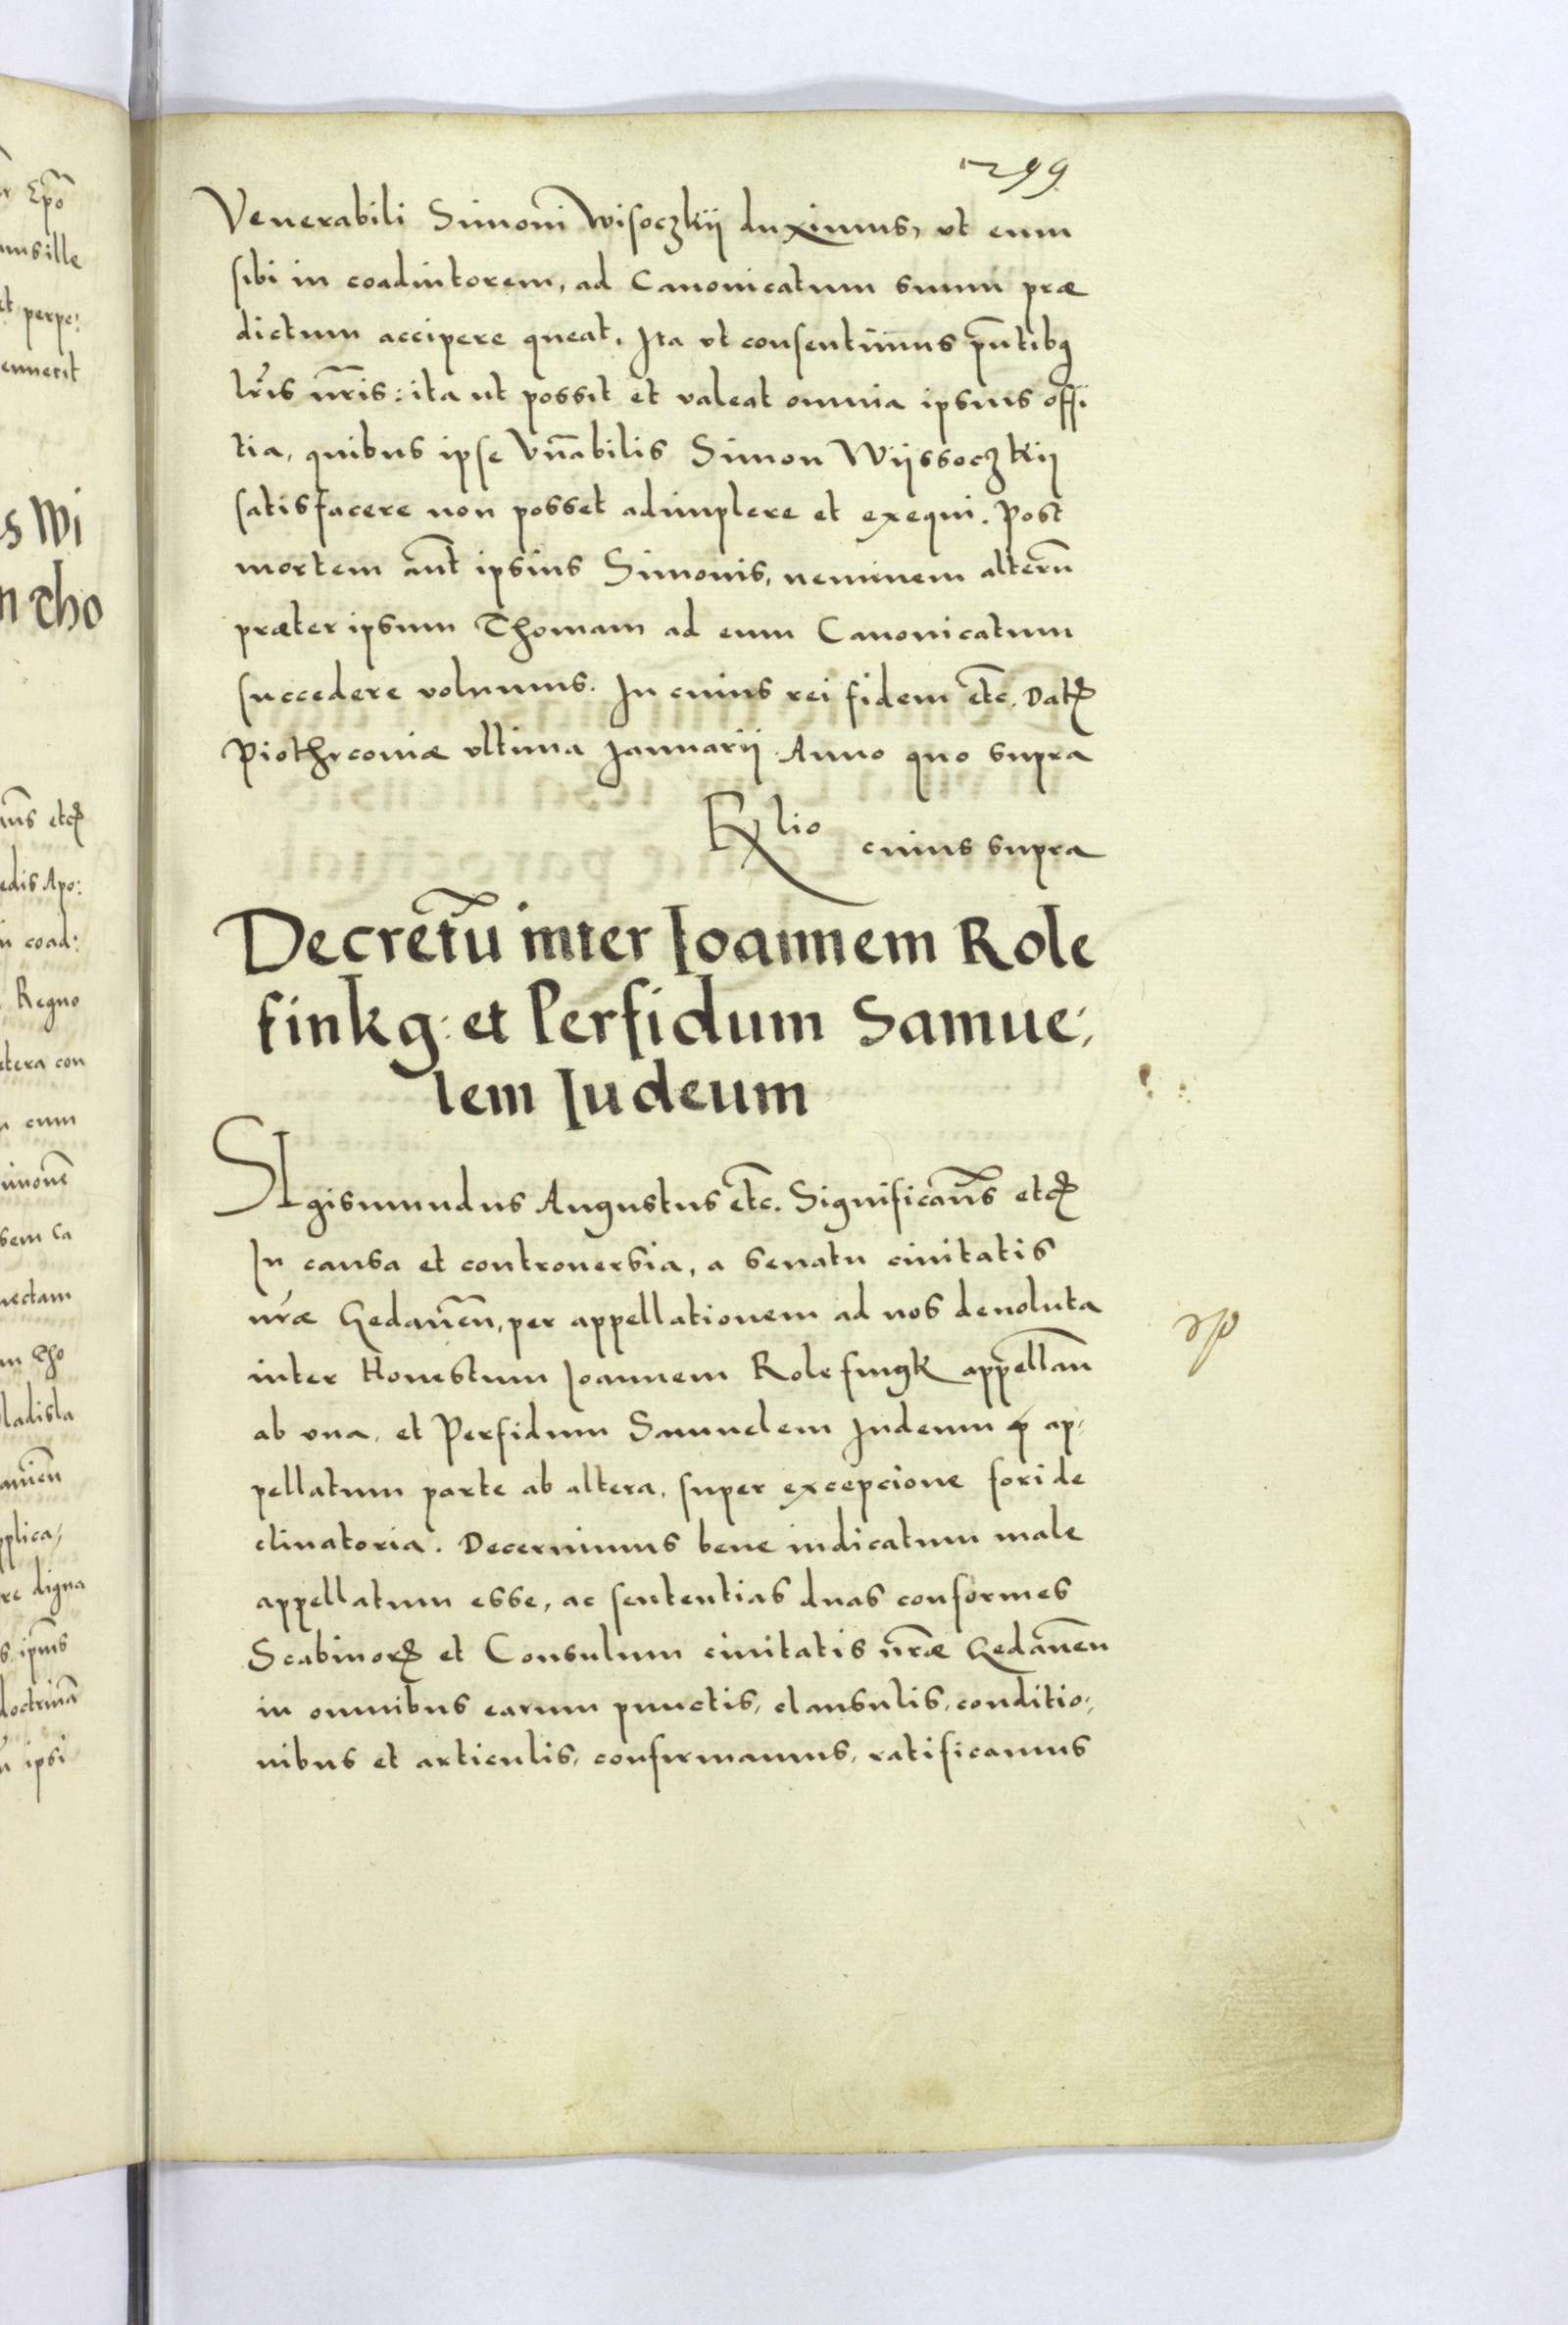 299
Venerabili Simoni Wisoczkij duximus, vt eum
sibi in coadiutorem, ad Canonicatum suum præ
dictum accipere queat. Ita vt consentimus pn̄tibꝗ
lr̄is nr̄is: ita ut possit et valeat omnia ipsius offi
tia, quibus ipse Vn̄abilis Simon Wijssoczkij
satisfacere non posset adimplere et exequi. Post
mortem aūt ipsius Simonis, neminem alterū
præter ipsum Thomam ad eum Canonicatum
succedere volumus. In cuius rei fidem etc̄. Datꝭ
Piothrcoviæ vltima Januarij Anno quo supra
Rlio cuius supra
Decretū inter Ioannem Role
finkg: et Perfidum Samue:
lem Iudeum
SIgismundus Augustus etc̄. Significam̄s etcꝭ
In causa et controuersia, a senatu ciuitatis
nr̄æ Gedanēn, per appellationem ad nos deuoluta
inter Honestum Joannem Rolefingk appellan̄
ab vna, et Perfidum Samuelem Judeum ꝓ ap:
pellatum parte ab altera, super excepcione fori de
clinatoria. Decernimus bene iudicatum male
appellatum esse, ac sententias duas conformes
Scabinorꝝ et Consulum ciuitatis nr̄æ Gedanēn
in omnibus earum punctis, clausulis, conditio:
nibus et articulis, confirmamus, ratificamus
r Ep̄o
mus ille
et perpe:
s Wi
n Tho
am̄s etcꝭ
edis Apo:
n coad:
Regno
etera con
a cum
imonē
sem ca
nectam
m Tho
ladisla
avien̄
pplica,
re digna
s, ipm̄s
doctrinā
ipsi